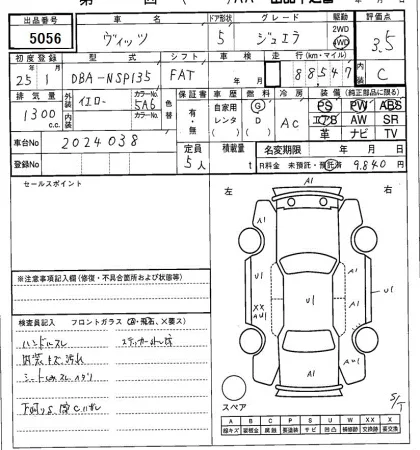 出品番号 車名 ドア形状 グレード 駆動 評価点
5056 ヴィッツ 5 ジュエラ 2WD 4WD 3.5
初度登録 型式 シフト 車検 走行(km・マイル) 内装
25年1月 DBA-NSP135 FAT 88547 C
排気量 外装 イエロー カラーNo. 5A6 色替 保証書 車歴 燃料 冷房 装備(純正部品に限る)
1300c.c. 内装 カラーNo. 有・無 自家用 レンタ G D AC PS PW ABS
エアB AW SR
革 ナビ TV
車台No 2024038 定員 積載量 名変期限 年 月 日
登録No 5人 t R料金 未預託・預託済 9,840円
セールスポイント
左 右
A1
A1 A1
U1 U1 A1 U1
XX
AU1
A1 AU1
A1
※注意事項記入欄(修復・不具合箇所および状態等)
検査員記入 フロントガラス(A・飛石、×要ス)
ハンドルスレ
内装キズ汚れ
シートスレ
スペア
S/T
A B C P S U W X XX ×
線キズ 要補修 腐蝕 要塗装 サビ 凹凸 補修跡 交換跡 要交換